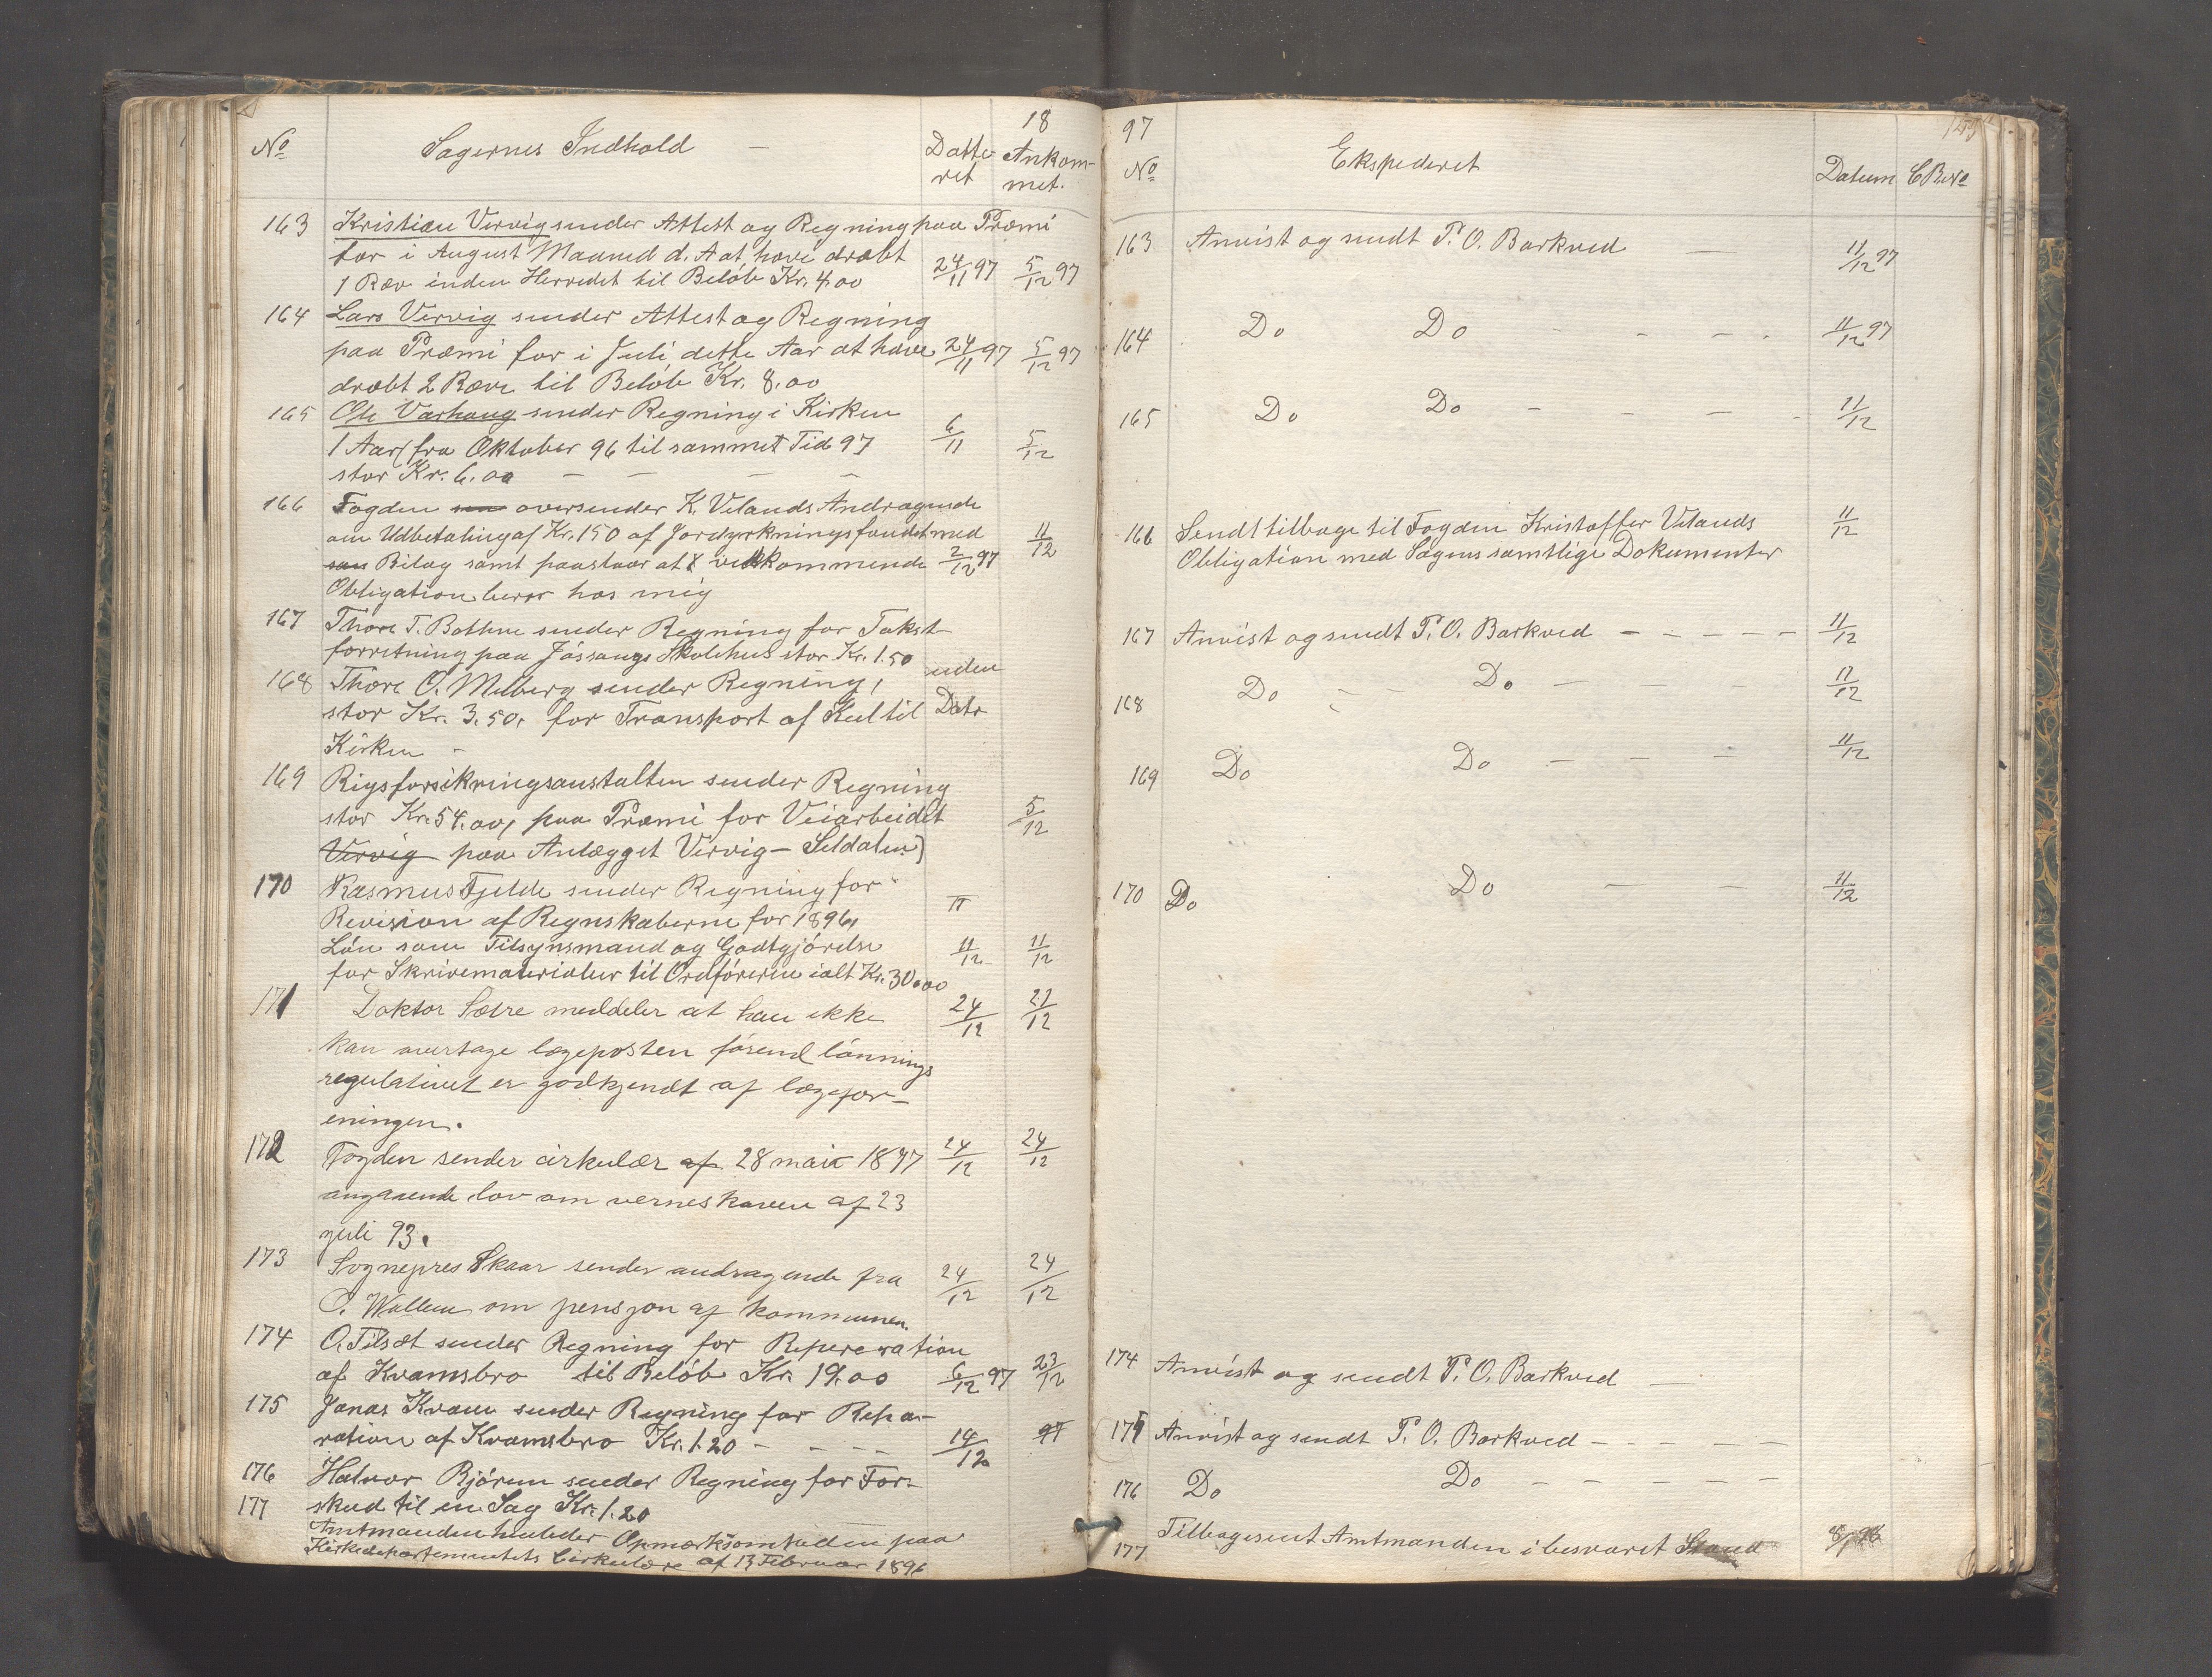 18
No Sagernes Indhold — Datte- Ankom-
ret met.
163 Kristian Vervig sender Attest og Regning paa Præmi
for i August Maaned d. A at have dræbt
1 Ræv inden Herredet til Beløb Kr. 4,00 24/11 97 5/12 97
164 Lars Vervig sender Attest og Regning
paa Præmi for i Juli dette Aar at have 24/11 97 5/12 97
dræbt 2 Ræve til Beløb Kr. 8.00
165 Ole Varhaug sender Regning i Kirken
1 Aar fra Oktober 96 til sammet Tid 97 6/11 5/12
stor Kr. 6.00 — — — —
166 Fogden oversender K. Velands Andragende
om Udbetaling af Kr. 150 af Jordyrkningsfondet med 11/12
Bilag samt paastaar at vedkommende 2/12 97
Obligation beror hos mig
167 Thore T. Bothne sender Regning for Takst-
forretning paa Jøssangs Skolehus stor Kr. 1.50
168 Thore O. Melberg sender Regning, uden
stor Kr. 3.50, for Transport af Kul til Dato
Kirken —
169 Rigsforsikringsanstalten sender Regning
stor Kr. 54.00, paa Præmi for Veiarbeidet 5/12
Vervig paa Anlægget Vervig — Seldalen
170 Rasmus Tjelde sender Regning for
Revision af Regnskaberne for 1896, "
Løn som Tilsynsmand og Godtgjørelse 11/12 11/12
for Skrivematerialer til Ordføreren ialt Kr. 30.00
171 Doktor Sætre meddeler at han ikke 24/12 22/12
kan overtage lægeposten førend lønnings
regulativet er godkjendt af lægefor-
eningen.
172 Fogden sender cirkulær af 28 mai 1897 24/12 24/12
angaaende lov om verneskoven af 23
juli 93.
173 Sognepres Skaar sender andragende fra 24/12 24/12
O. Wallem om pensjon af kommunen.
174 O. Tilsæt sender Regning for Repereration
af Kvamsbro til Beløb Kr. 19.00 6/12 97 23/12
175 Jonas Kvam sender Regning for Repa-
ration af Kvamsbro Kr. 1.20 — — — — 14/12 97
176 Halvor Bjørum sender Regning for For-
177 skud til en Sag Kr. 1.20
Amtmanden henleder Opmærksomheden paa
Kirkedepartementets Cirkulære af 13 Februar 1896
97
No Ekspederet Datum CB No
163 Anvist og sendt P. O. Barkved — 11/12 97
164 Do Do — — — 11/12 97
165 Do Do — — — — 11/12
166 Sendt tilbage til Fogden Kristoffer Velands 11/12
Obligation med Sagens samtlige Dokumenter
167 Anvist og sendt P. O. Barkved — — — — — 11/12
168 Do — — Do — — 11/12
169 Do Do — — — 11/12
170 Do Do — — 11/12
174 Anvist og sendt P. O. Barkved —
175 Anvist og sendt P. O. Barkved — — — — —
176 Do Do — — — — —
177 Tilbagesent Amtmanden i besvaret Stand 8/1 98